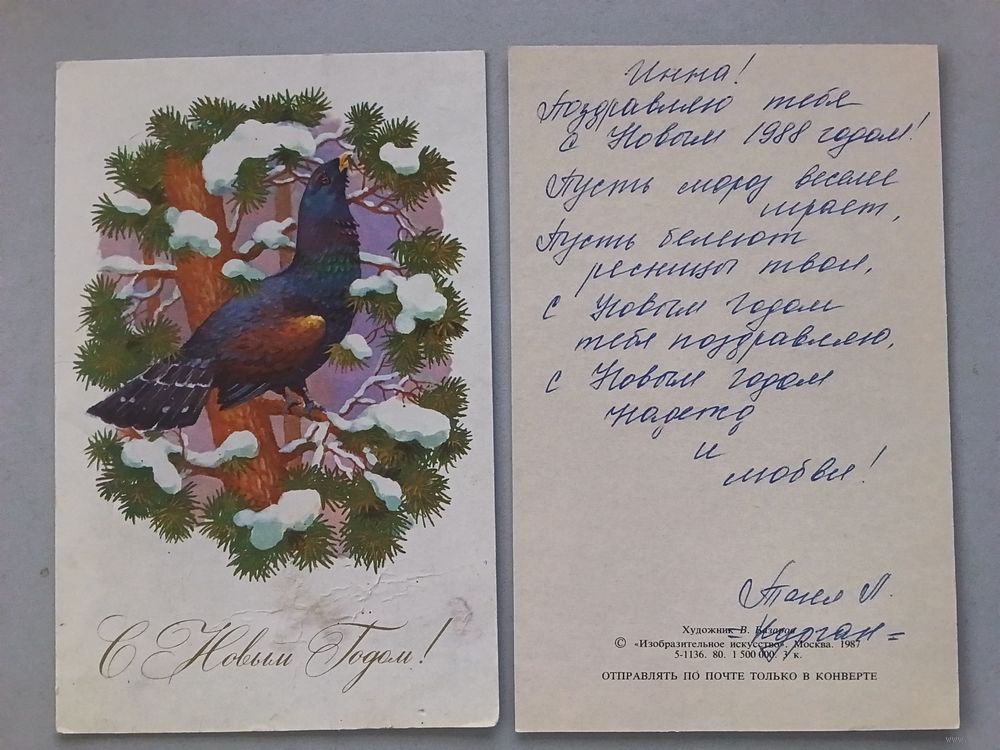 С Новым Годом!
Инна!
Поздравляю тебя
с Новым 1988 годом!
Пусть мороз веселее
играет,
Пусть белеют
ресницы твои,
с Новым годом
тебя поздравляю,
с Новым годом
надежд
и
любви!
Таня Л.
=Курган=
Художник В. Базаров
© «Изобразительное искусство». Москва. 1987
5-1136. 80. 1 500 000. 3 к.
ОТПРАВЛЯТЬ ПО ПОЧТЕ ТОЛЬКО В КОНВЕРТЕ